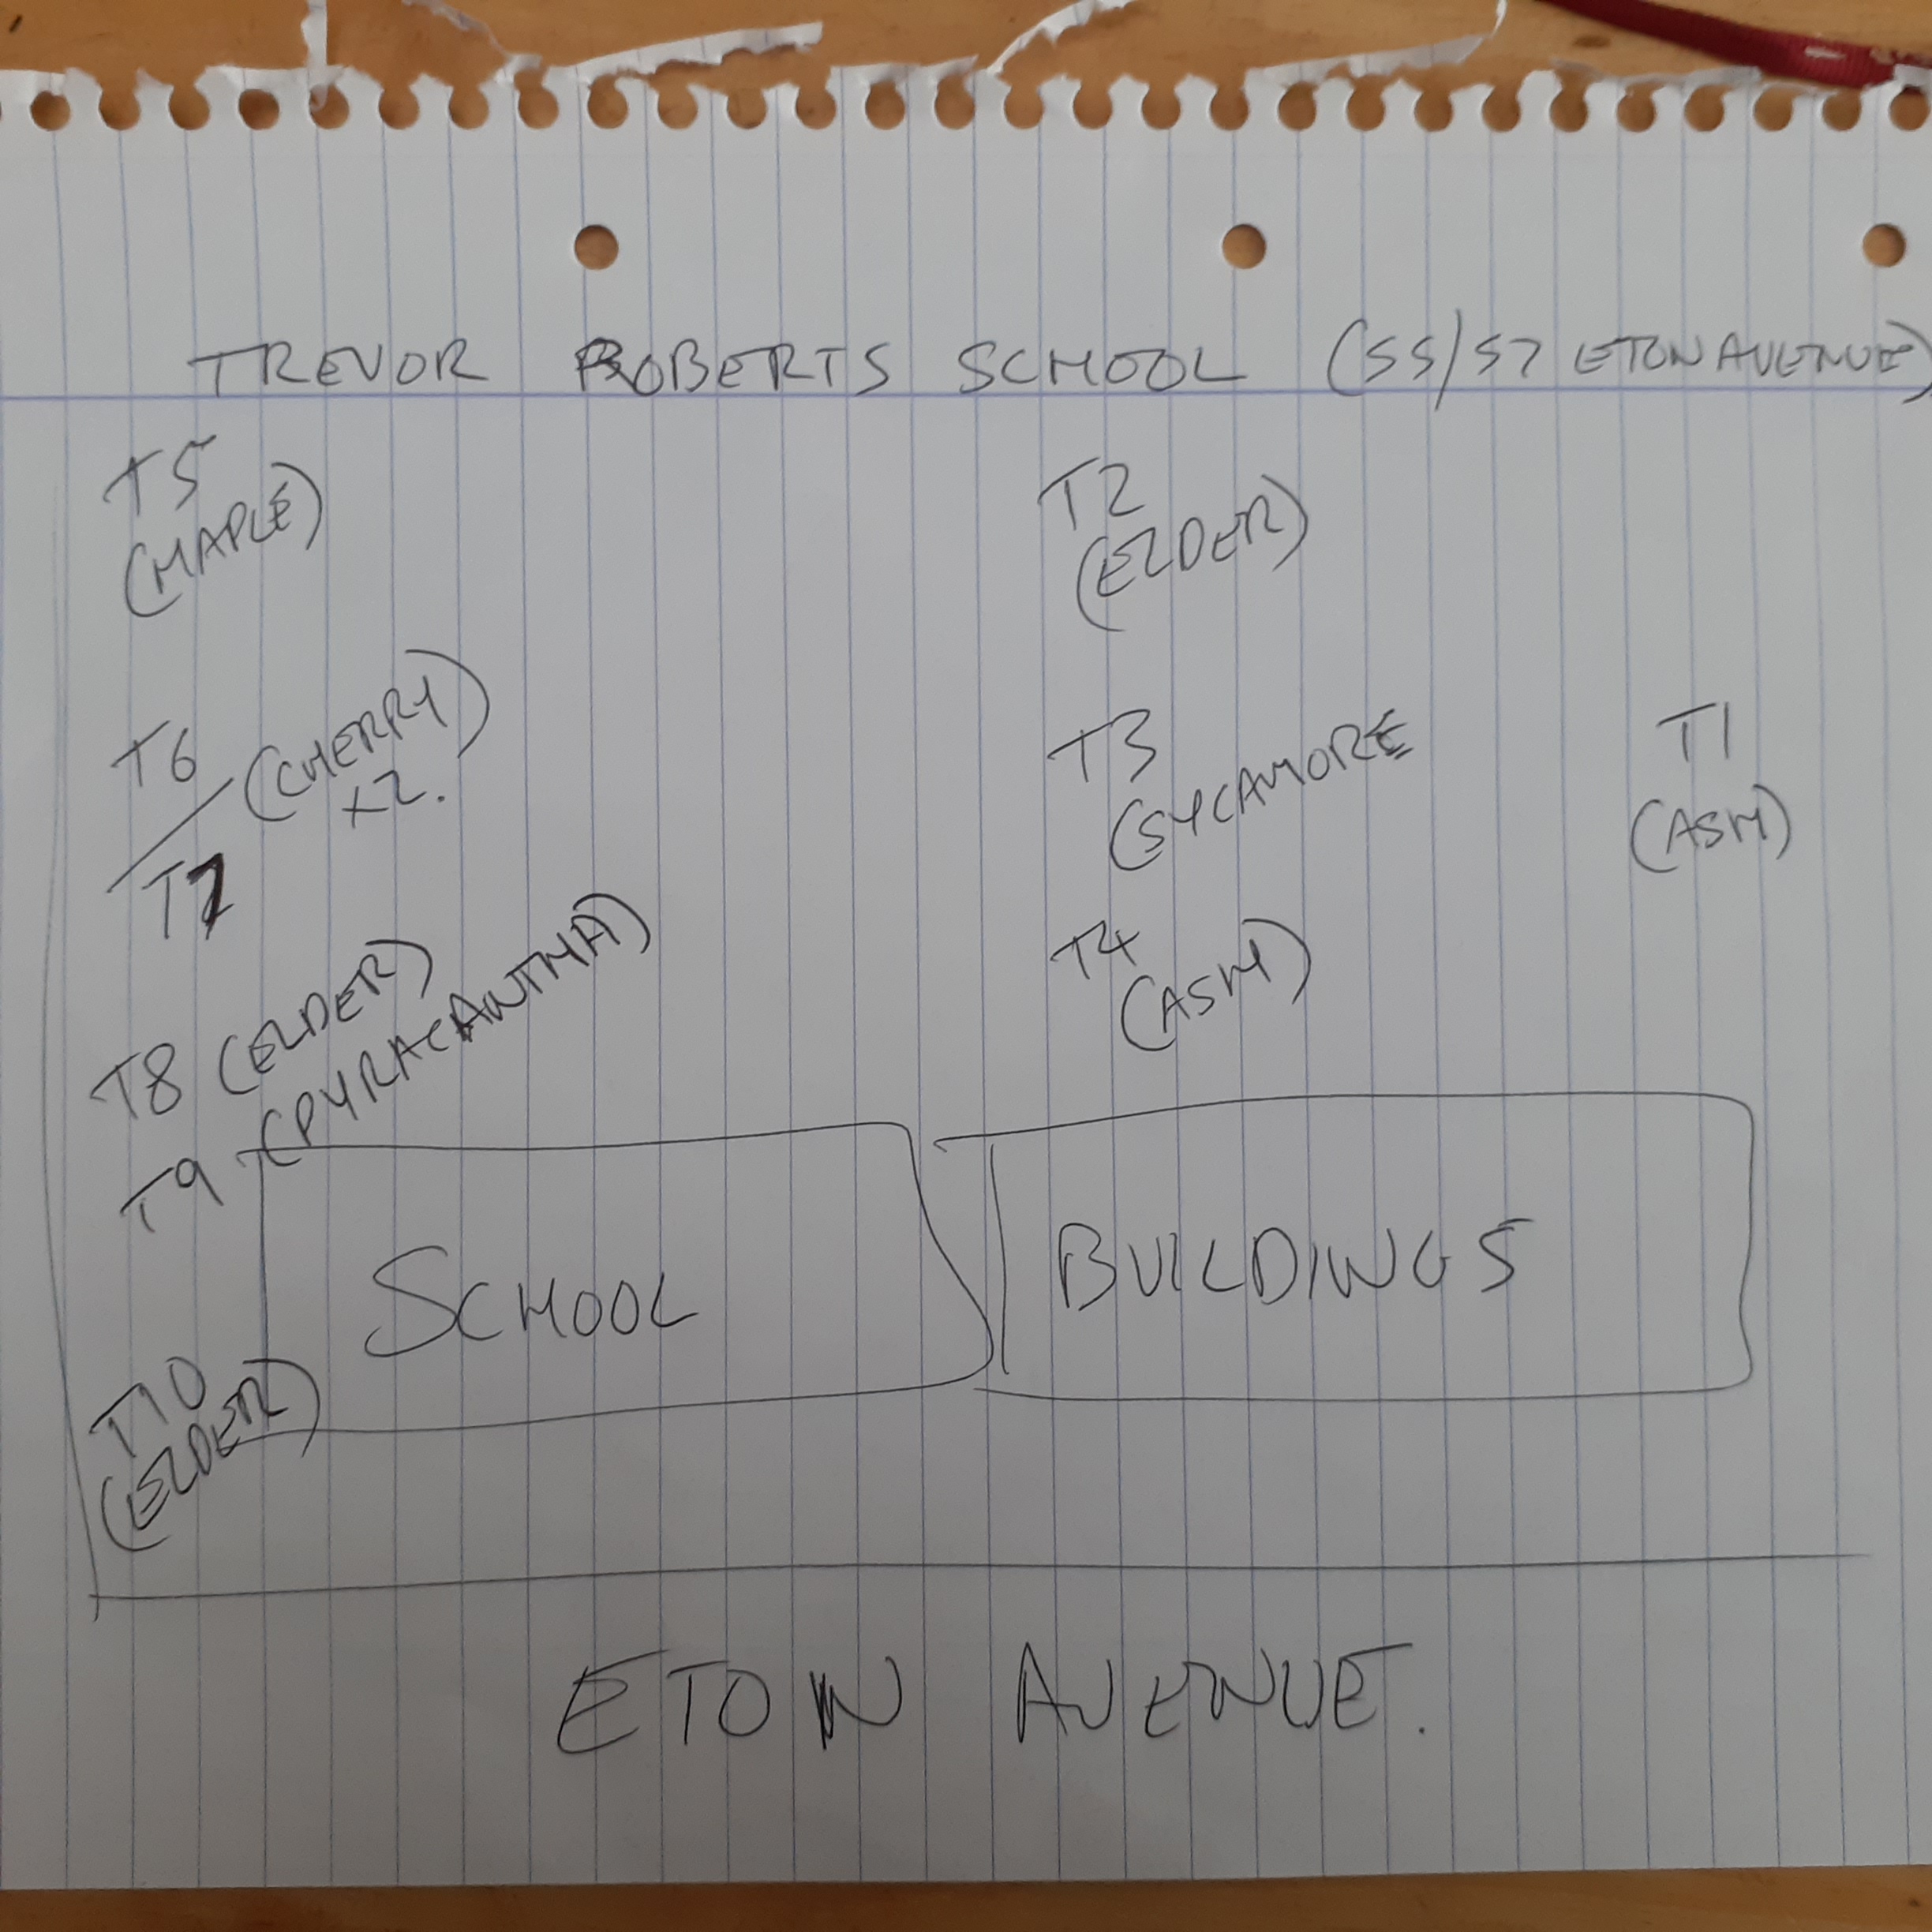 TREVOR ROBERTS SCHOOL (55/57 ETON AVENUE)
T5
(MAPLE)
T2
(ELDER)
T6
(CHERRY)
x2.
T7
T3
(SYCAMORE
T1
(ASH)
T4
(ASH)
T8 (ELDER)
T9 (PYRACANTHA)
SCHOOL BUILDINGS
T10
(ELDER)
ETON AVENUE.